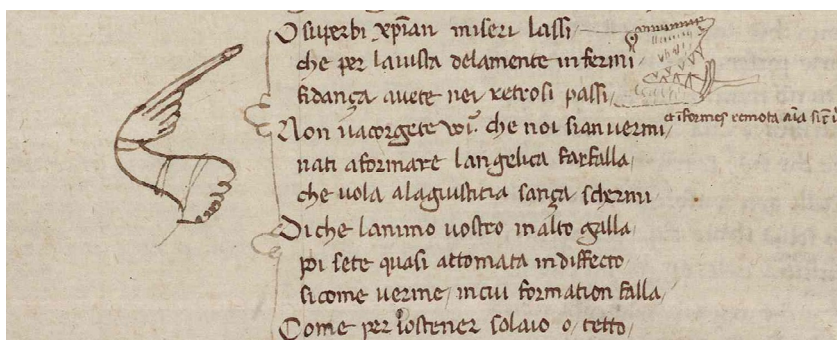 O superbi xp̄ian miseri lassi
che per lauista delamente infermi
fidança auete nei retrosi passi
Non uacorgete uoi che noi sian uermi
nati aformare langelica farfalla
che uola alagiustitia sança schermi
Di che lanimo uostro inalto galla
poi sete quasi attomata indiffecto
sicome uerme incui formation falla
Come per sostener solaio o tetto